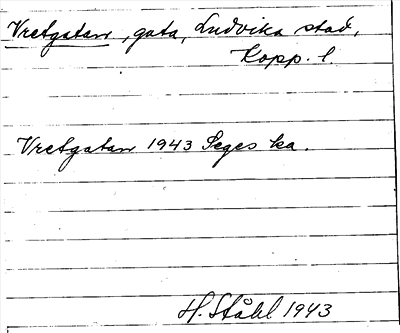 Vretgatan, gata, Ludvika stad,
Kopp. l.
Vretgatan 1943 Seges ka.
H. Ståhl 1943